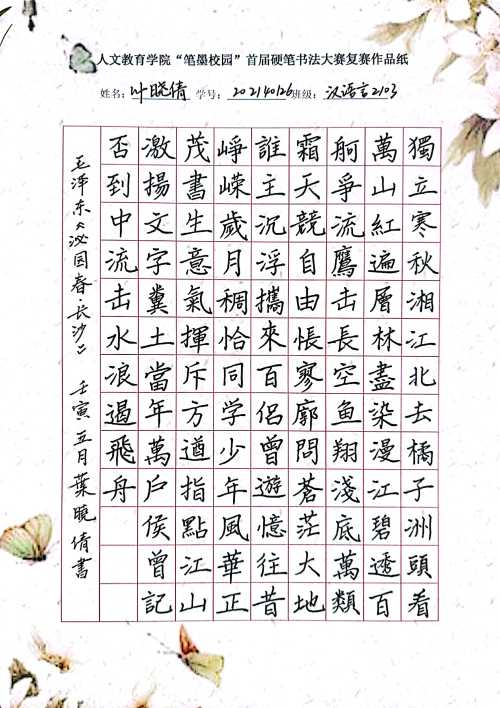 人文教育学院“笔墨校园”首届硬笔书法大赛复赛作品纸
姓名：叶晓倩 学号：202140126班级：汉语言2103
獨立寒秋湘江北去橘子洲頭看
萬山紅遍層林盡染漫江碧透百
舸爭流鷹击長空鱼翔淺底萬類
霜天競自由悵寥廓問蒼茫大地
誰主沉浮攜來百侶曾遊憶往昔
崢嶸歲月稠恰同学少年風華正
茂書生意氣揮斥方遒指點江山
激揚文字糞土當年萬戶侯曾記
否到中流击水浪遏飛舟
毛泽东《泌国春·長沙》 壬寅五月葉曉倩書